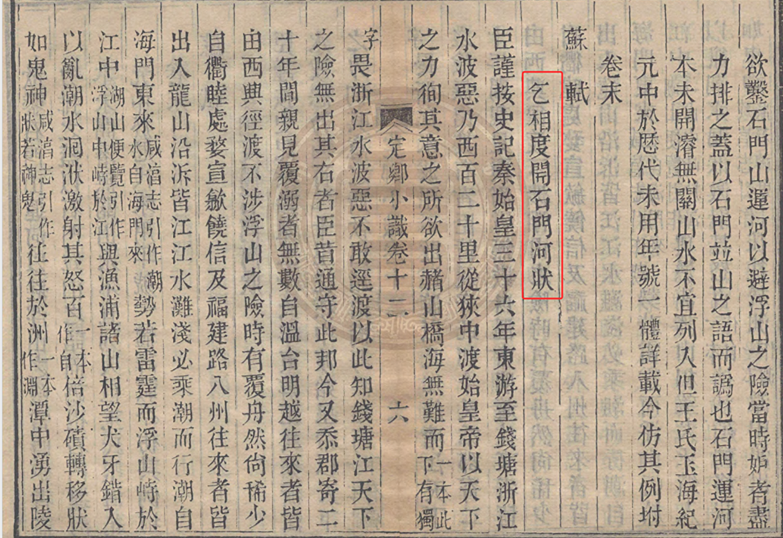 欲鑿石門山運河以避浮山之險當時妒者盡
力排之蓋以石門並山之語而譌也石門運河
本未開濬無關山水不宜列入但王氏玉海紀
元中於歷代未用年號一體詳載今仿其例坿
卷末
蘇軾
乞相度開石門河狀
臣謹按史記秦始皇三十六年東游至錢塘浙江
水波惡乃西百二十里從狹中渡始皇帝以天下
之力徇其意之所欲出赭山橋海無難而一本此下有獨
定鄉小識卷十二 六
字畏浙江水波惡不敢逕渡以此知錢塘江天下
之險無出其右者臣昔通守此邦今又忝郡寄二
十年間親見覆溺者無數自溫台明越往來者皆
由西興徑渡不涉浮山之險時有覆舟然尙稀少
自衢睦處婺宣歙饒信及福建路八州往來者皆
出入龍山沿泝皆江江水灘淺必乘潮而行潮自
海門東來咸湻志引作潮水自海門來勢若雷霆而浮山峙於
江中湖山便覽引作浮山中峙於江與漁浦諸山相望犬牙錯入
以亂潮水洄洑激射其怒百一本作自倍沙磧轉移狀
如鬼神咸湻志引作狀若神鬼往往於洲一本作淵潭中湧出陵